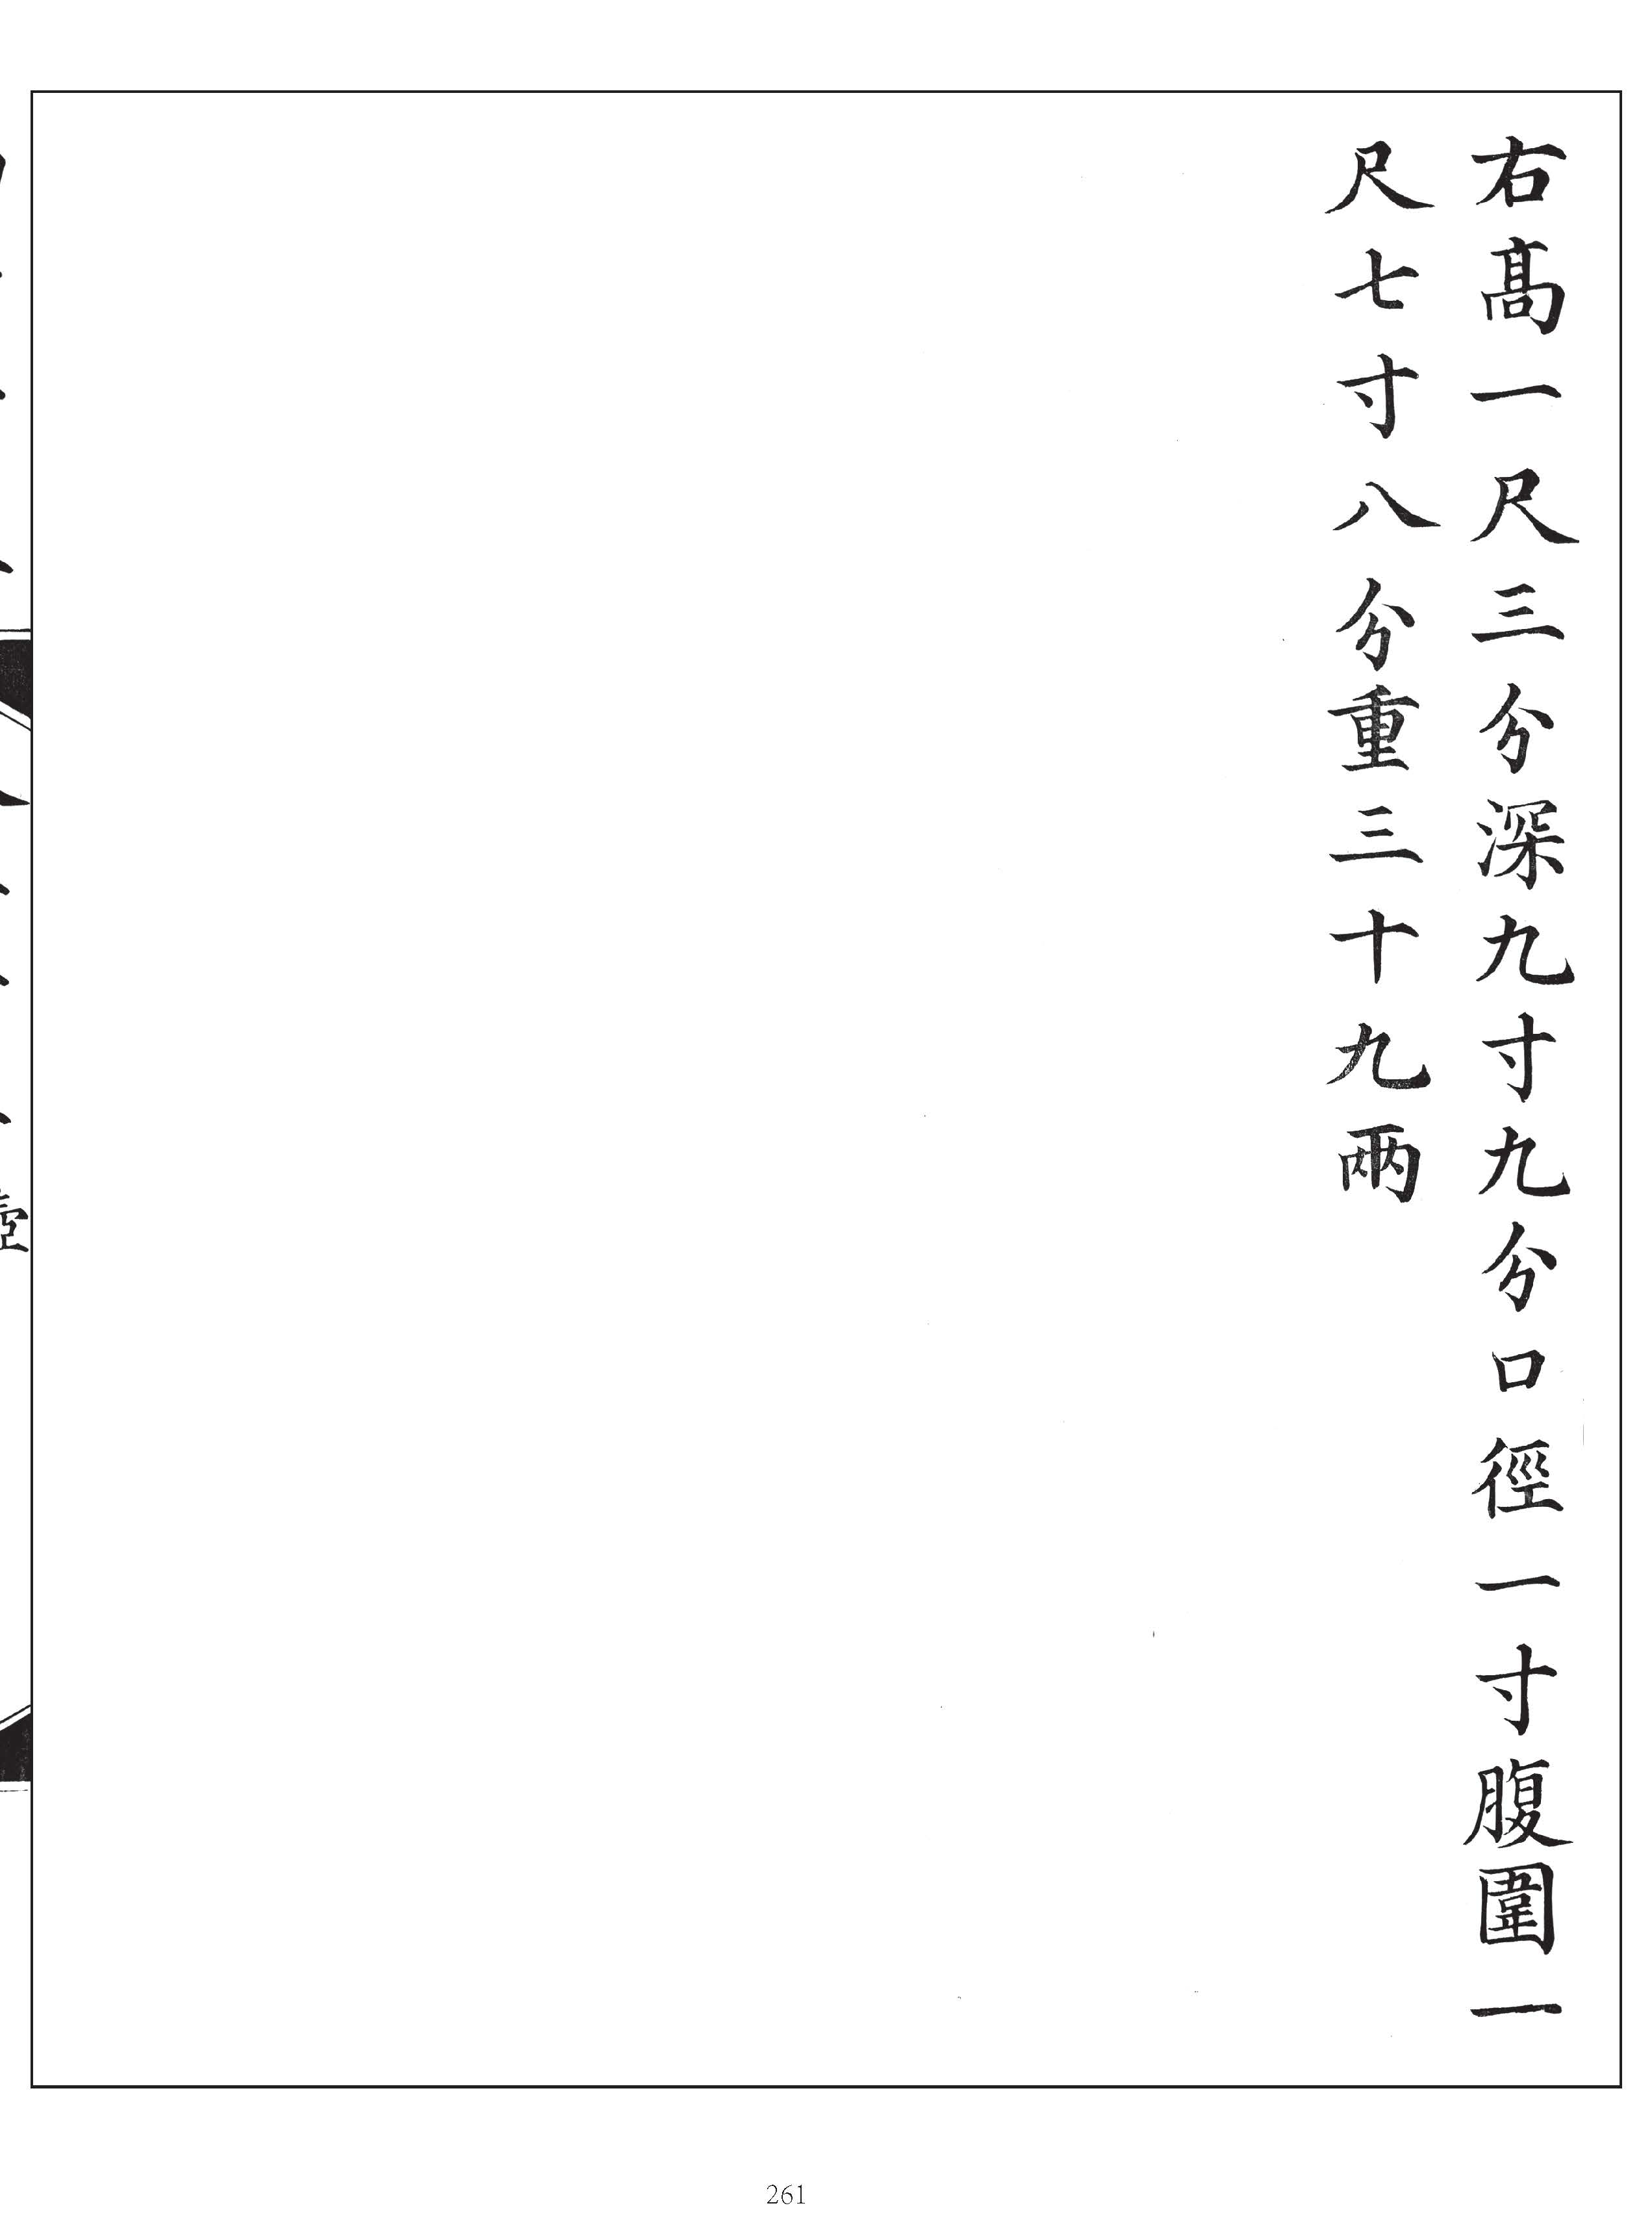 右髙一尺三分深九寸九分口徑一寸腹圍一
尺七寸八分重三十九兩
261